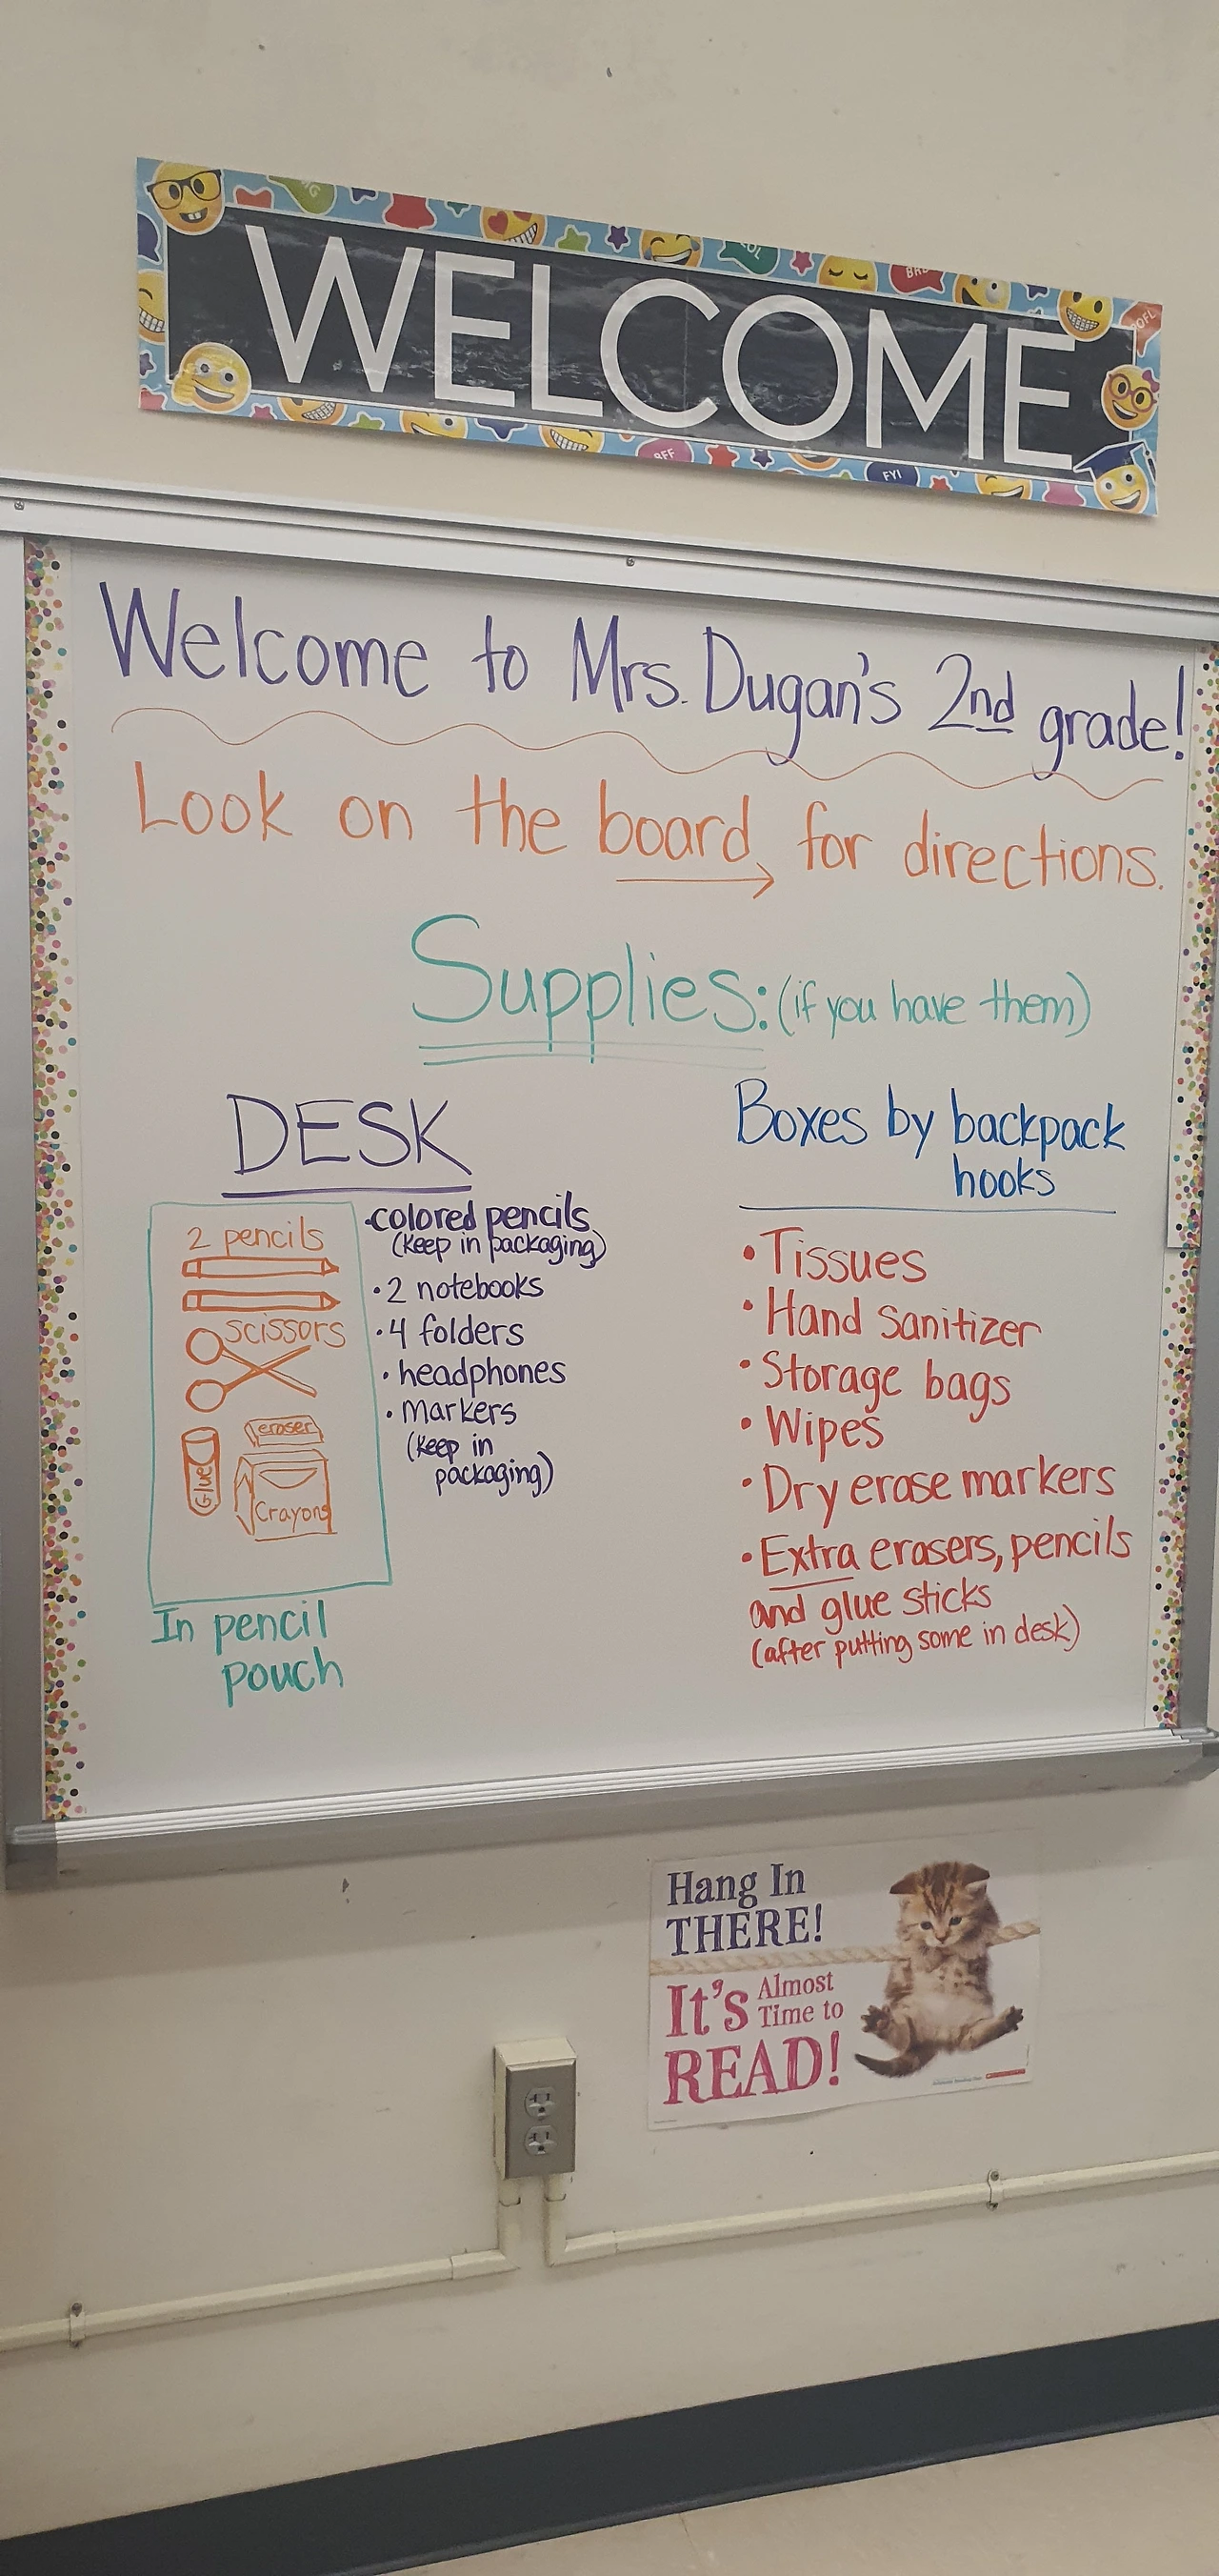 WELCOME
BFF
FYI
Welcome to Mrs. Dugan's 2nd grade!
Look on the board for directions.
Supplies: (if you have them)
DESK
2 pencils
scissors
eraser
Glue
Crayons
In pencil
pouch
•colored pencils
(keep in packaging)
•2 notebooks
•4 folders
•headphones
•markers
(keep in
packaging)
Boxes by backpack
hooks
•Tissues
•Hand sanitizer
•Storage bags
•Wipes
•Dry erase markers
•Extra erasers, pencils
and glue sticks
(after putting some in desk)
Hang In
THERE!
It's Almost
Time to
READ!